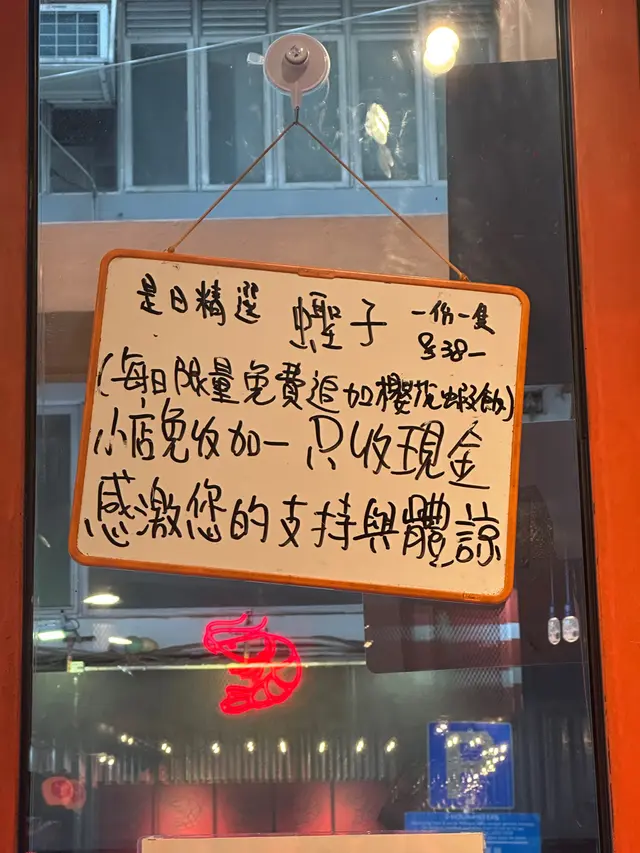 是日精選 蟶子 一份一隻
$38一
(每日限量免費追加櫻花蝦飯)
小店免收加一 只收現金
感激您的支持與體諒
P